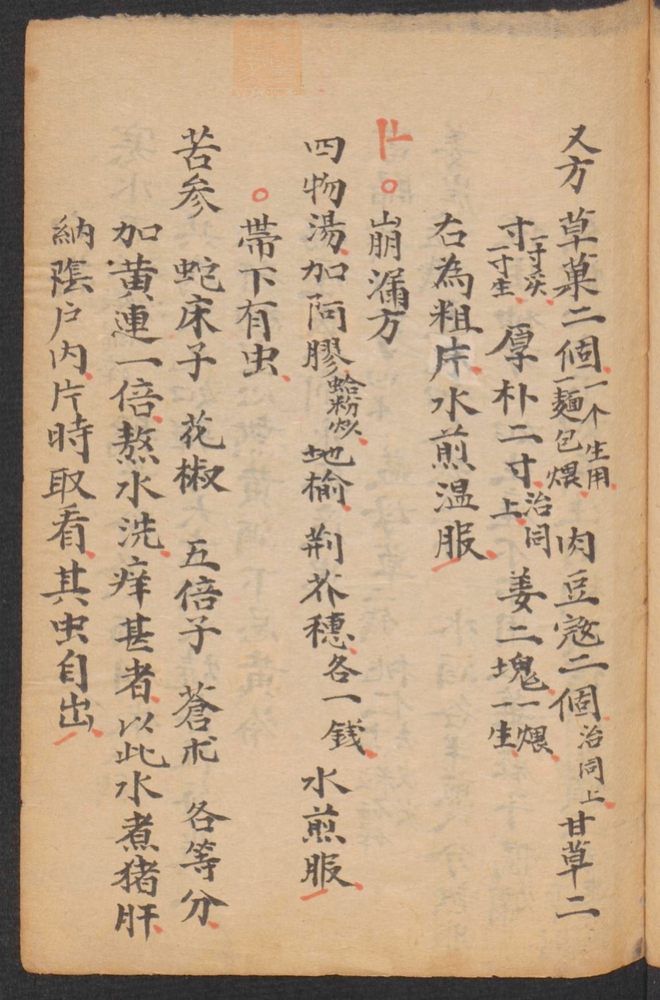 又方 草菓二個 一个生用 一麵包煨 肉豆寇二個 治同上 甘草二
寸 一寸炙 一寸生 厚朴二寸 治同上 姜二塊 一煨 一生
右為粗片水煎温服
崩漏方
四物湯加阿膠 蛤粉炒 地榆 荆芥穗 各一錢 水煎服
帶下有虫
苦参 蛇床子 花椒 五倍子 蒼朮 各等分
加黄連一倍熬水洗痒甚者以此水煮猪肝
納陰户内片時取看其虫自出